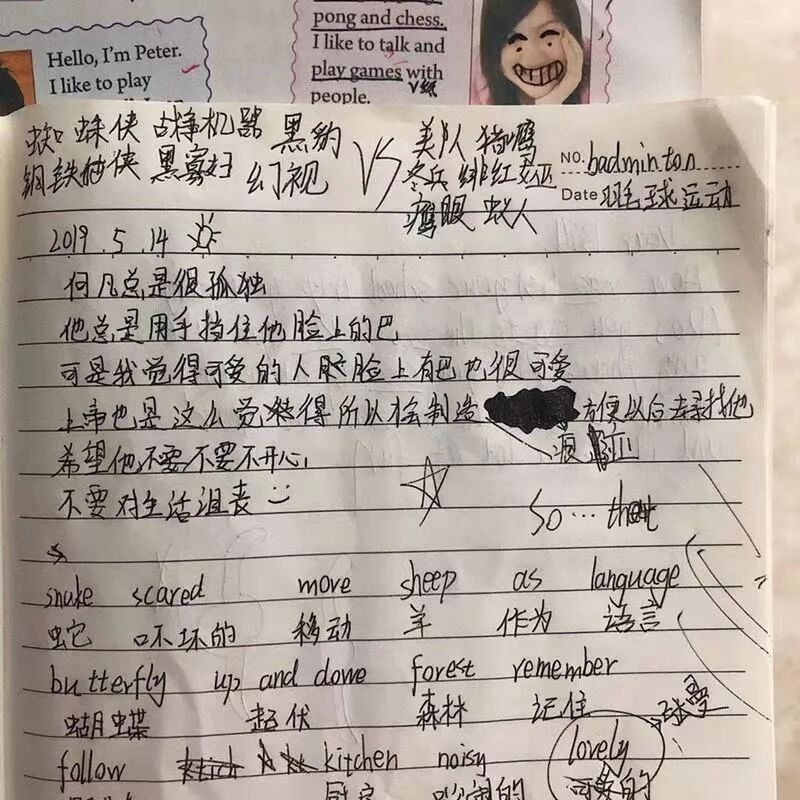 Hello, I'm Peter.
I like to play
pong and chess.
I like to talk and
play games with
people.
蜘蛛侠 战争机器 黑豹
钢铁侠 黑寡妇 幻视
VS
美队 猎鹰
冬兵 绯红女巫
鹰眼 蚁人
NO. badminton
Date 羽毛球运动
2019.5.14
何凡总是很孤独
他总是用手挡住他脸上的巴
可是我觉得可爱的人脸上有巴也很可爱
上帝也是这么觉得所以会制造 方便以后去寻找他
希望他不要不要不开心
不要对生活沮丧
So … that
snake scared move sheep as language
蛇 吓坏的 移动 羊 作为 语言
butterfly up and dowe forest remember
蝴蝶 起伏 森林 记住
follow kitchen noisy lovely
厨房 吵闹的 可爱的